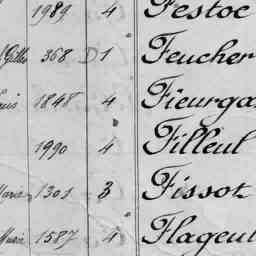 1989 4 Festoc
Gilles 368 D 1 Feucher
1848 4 Fieurga
1990 4 Filleul
Marie 1301 3 Fissot
Marie 1587 4 Flageul